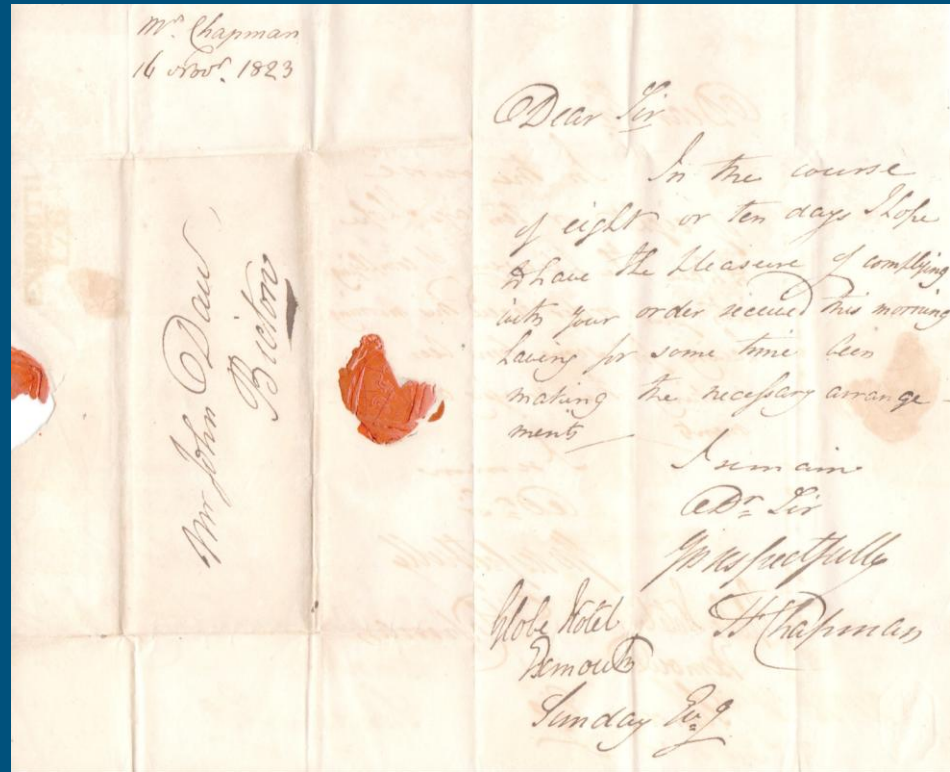 Mr. Chapman
16 Novr. 1823
Mr John Daw
Bicton
Dear Sir
In the course
of eight or ten days I hope
to have the pleasure of complying
with your order received this morning
having for some time been
making the necessary arrange
ments
I remain
Dr Sir
Yrs respectfully
H Chapman
Globe Hotel
Exmouth
Sunday Evg